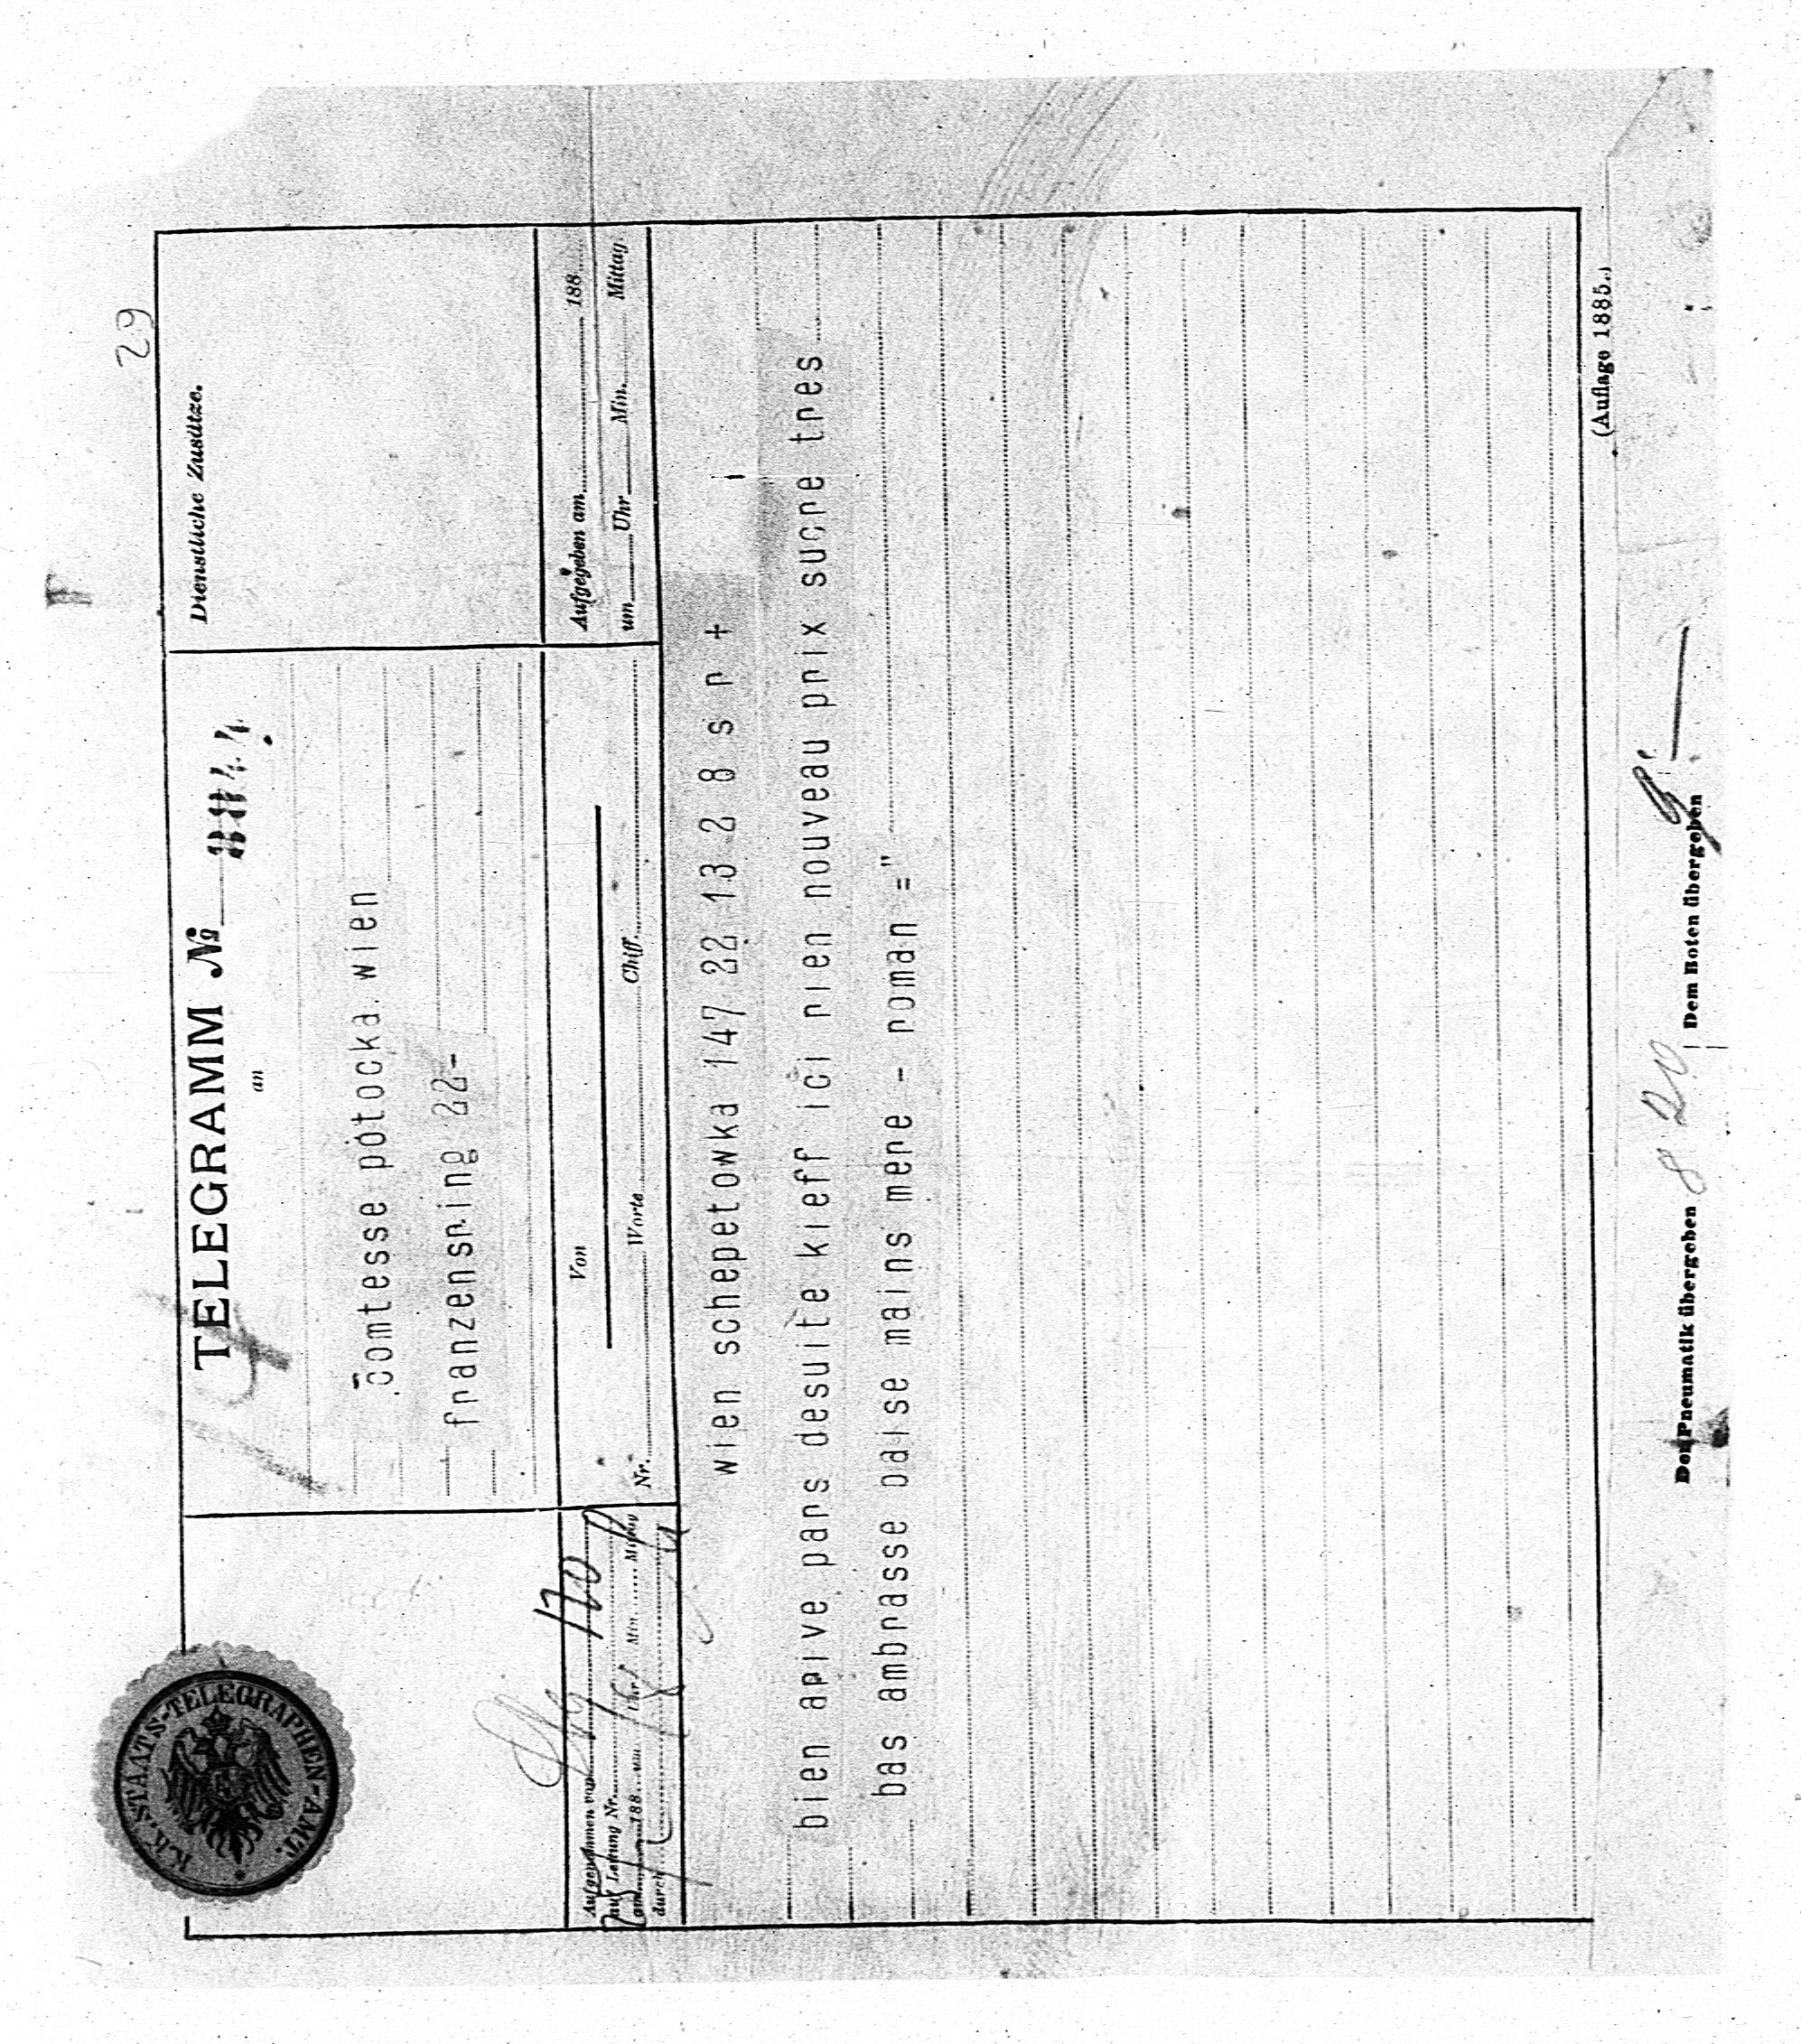 29
K.K. STAATS-TELEGRAPHEN-AMT.
TELEGRAMM №
an
comtesse potocka. wien
franzensring 22-
Dienstliche Zusätze.
Aufgenommen von
auf Leitung Nr.
am 188 um Uhr Min. Mittag
durch
Von
Nr. Worte Chiff.
Aufgegeben am 188
um Uhr Min. Mittag
wien schepetowka 147 22 13 2 8 s r +
bien arive pars desuite kieff ici rien nouveau prix sucre tres
bas ambrasse baise mains mere - roman ="
(Auflage 1885.)
Der Pneumatik übergeben 8 20 Dem Boten übergeben